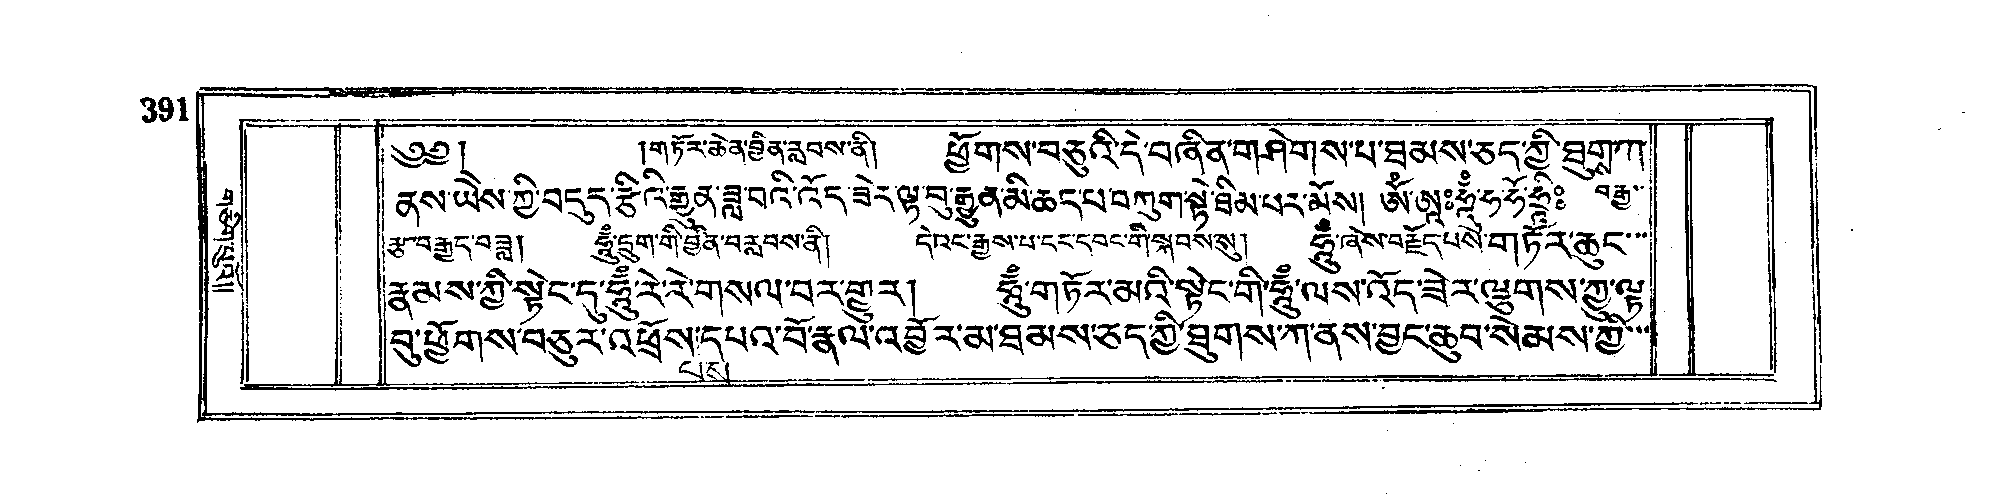 391
༄༅། །གཏོར་ཆེན་བྱིན་རླབས་ནི། ཕྱོགས་བཅུའི་དེ་བཞིན་གཤེགས་པ་ཐམས་ཅད་ཀྱི་ཐུགྲཀ
ནས་ཡེས་ཀྱི་བདུད་རྩིའི་རྒྱུན་ཟླ་བའི་འོད་ཟེར་ལྟ་བུ་རྒྱུན་མི་ཆད་པ་བཀུག་སྟེ་ཐིམ་པར་མོས། ཨོཾ་ཨཱཿཧཱུྃ་ཧ་ཧོ་ཧྲཱིཿ བརྒྱ་
རྩ་བརྒྱད་བཟླ། ཧཱུྃ་དྲུག་གི་བྱིན་བརླབས་ནི། དེ་འང་རྒྱས་པ་དང་དབང་གི་སྐབས་སུ། ཧཱུྃ་ཞེས་བརྗོད་པས་གཏོར་ཆུང་
རྣམས་ཀྱི་སྟེང་དུ་ཧཱུྃ་རེ་རེ་གསལ་བར་གྱུར། ཧཱུྃ་གཏོར་མའི་སྟེང་གི་ཧཱུྃ་ལས་འོད་ཟེར་ལྕུགས་ཀྱུ་ལྟ
བུ་ཕྱོགས་བཅུར་འཕྲོས་དཔའ་བོ་རྣལ་འབྱོར་མ་ཐམས་ཅད་ཀྱི་ཐུགས་ཀ་ནས་བྱང་ཆུབ་སེམས་ཀྱི་
པས